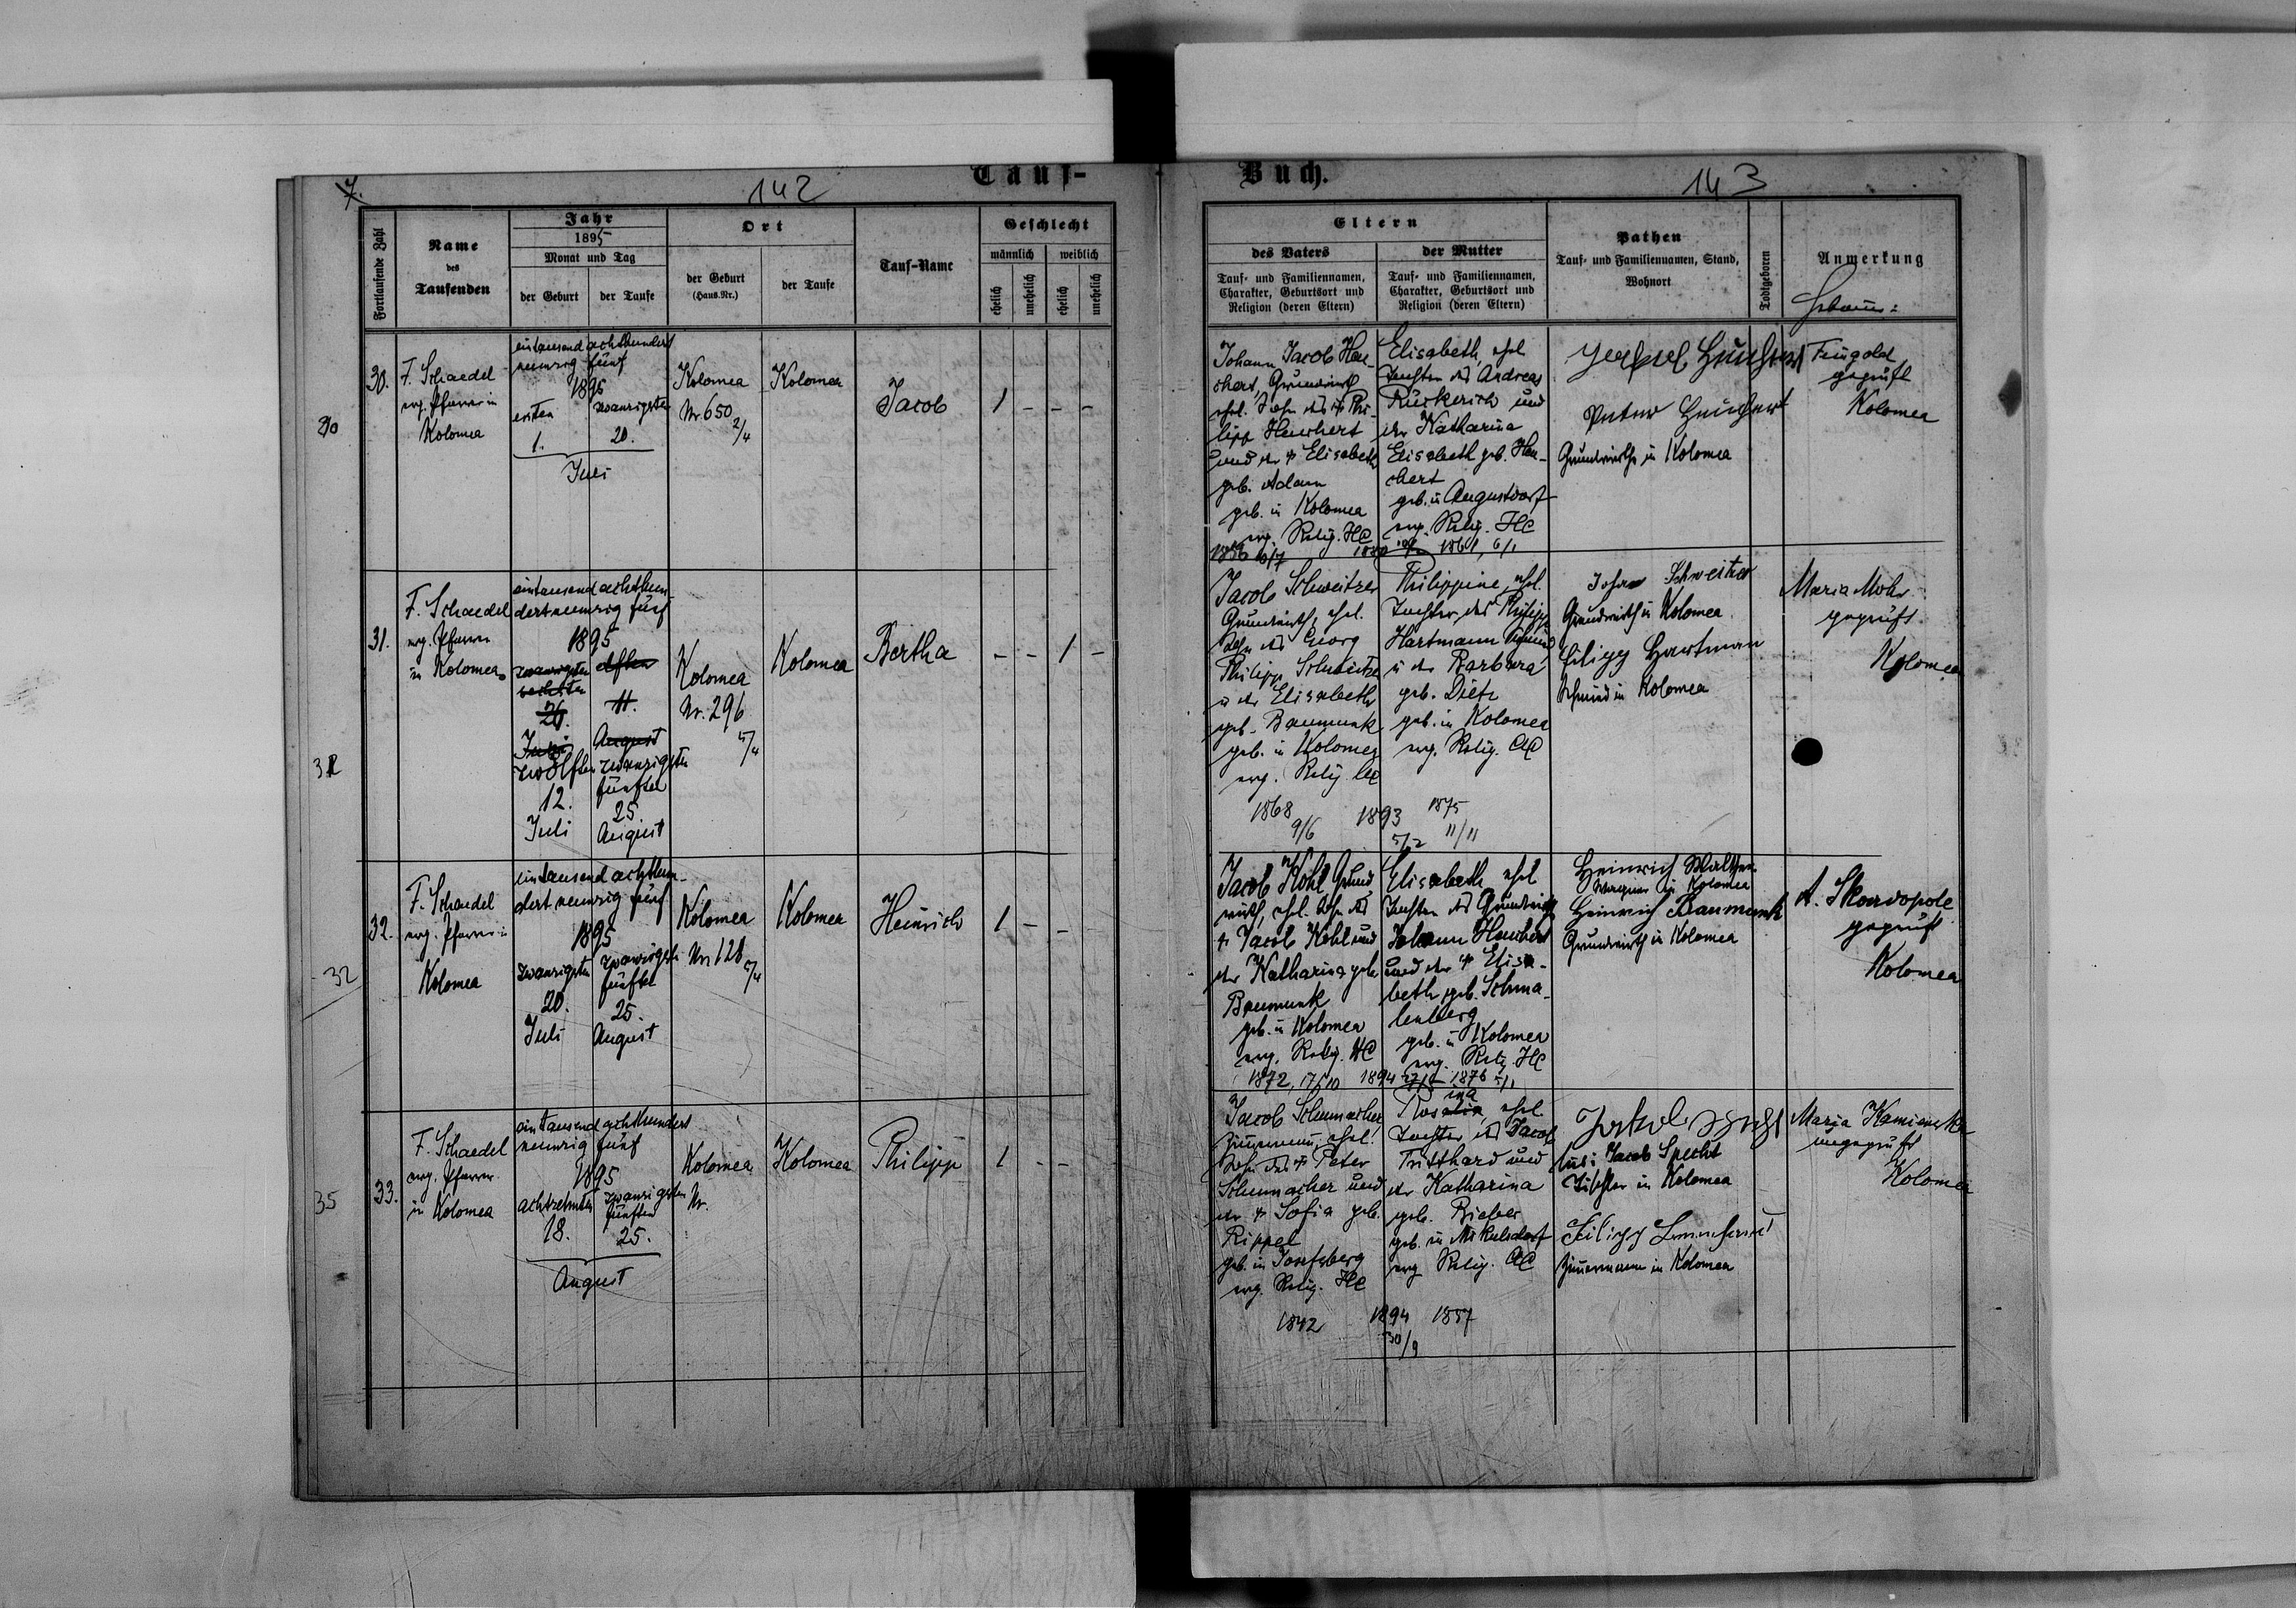 7.
142
Tauf-
Fortlaufende Zahl
Name
des
Taufenden
Jahr
1895
Monat und Tag
der Geburt
der Taufe
Ort
der Geburt
(Haus-Nr.)
der Taufe
Tauf-Name
Geschlecht
männlich
weiblich
ehelich
unehelich
ehelich
unehelich
30
30.
F. Schaedel
evg. Pfarrer in
Kolomea
eintausend achthundert
neunzig fünf
1895
ersten
zwanzigsten
1.
20.
Juli
Kolomea
Nr. 650
2/4
Kolomea
Jacob
1 - - -
31.
F. Schaedel
evg. Pfarrer
in Kolomea
eintausend achthun-
dert neunzig fünf
1895
zwanzigsten
elften
sechsten
26.
11.
Juni
August
zwölften
zwanzigsten
fünften
12.
25.
Juli
August
Kolomea
Nr. 296
5/4
Kolomea
Bertha
- - 1 -
32
32.
F. Schaedel
evg. Pfarrer in
Kolomea
eintausend achthun-
dert neunzig fünf
1895
zwanzigsten
fünften
20.
25.
Juli
August
Kolomea
Nr. 128
5/4
Kolomea
Heinrich
1 - -
35
33.
F. Schaedel
evg. Pfarrer
in Kolomea
eintausend achthundert
neunzig fünf
1895
achtzehnten
zwanzigsten
fünften
18.
25.
August
Kolomea
Nr.
Kolomea
Philipp
1 - -
Buch.
143
Eltern
des Vaters
Tauf- und Familiennamen,
Charakter, Geburtsort und
Religion (deren Eltern)
der Mutter
Tauf- und Familiennamen,
Charakter, Geburtsort und
Religion (deren Eltern)
Pathen
Tauf- und Familiennamen, Stand,
Wohnort
Todtgeboren
Anmerkung
Hebamme:
Johann Jacob Heu-
chert, Grundwirth
ehel. Sohn des † Phi-
lipp Heuchert
und der † Elisabeth
geb. Adam
geb. in Kolomea
evg. Relig. HC
Elisabeth, ehel.
Tochter des Andreas
Rückerich und
der Katharina
Elisabeth geb. Heu-
chert
geb. in Augustdorf
evg. Relig. HC
1861, 6/1
Peter Heuchert
Grundwirthe in Kolomea
Feugold
geprüft
Kolomea
Jacob Schweitzer
Grundwirth, ehel.
Sohn des Georg
Philipp Schweitzer
u. der Elisabeth
geb. Baumunk
geb. in Kolomea
evg. Relig. AC
1868
9/6
1893
5/2
Philippine, ehel.
Tochter des Philipp
Hartmann Schmied
u. der Barbara
geb. Dietz
geb. in Kolomea
evg. Relig. AC
1875
11/11
Johan Schweitzer
Grundwirth in Kolomea
Filipp Hartman
Schmied in Kolomea
Maria Mohr
geprüft.
Kolomea
Jacob Kohl Grund-
wirth, ehel. Sohn des
† Jacob Kohl und
der Katharina geb.
Baumunk
geb. in Kolomea
evg. Relig. HC
1872, 17/10
1894
Elisabeth ehel.
Tochter des Grundwirth
Johann Heuchert
und der † Elisa-
beth geb. Schma-
lenberg
geb. in Kolomea
evg. Relig. HC
1876
Heinrich Walter
Wagner in Kolomea
Heinrich Baumunk
Grundwirth in Kolomea
A. Skordopole
geprüft
Kolomea
Jacob Schumacher
Zimmermann, ehel.
Sohn des † Peter
Schumacher und
der † Sofia geb.
Rippel
geb. in Josefsberg
evg. Relig. HC
1842
1894
30/9
ina
Rosalia, ehel.
Tochter des Jacob
Tritthard und
der Katharina
geb. Bieber
geb. in Mikulsdorf
evg. Relig. AC
1857
Jacob Specht
Tischler in Kolomea
Zimmermann in Kolomea
Maria Kamienska
ungeprüft
Kolomea